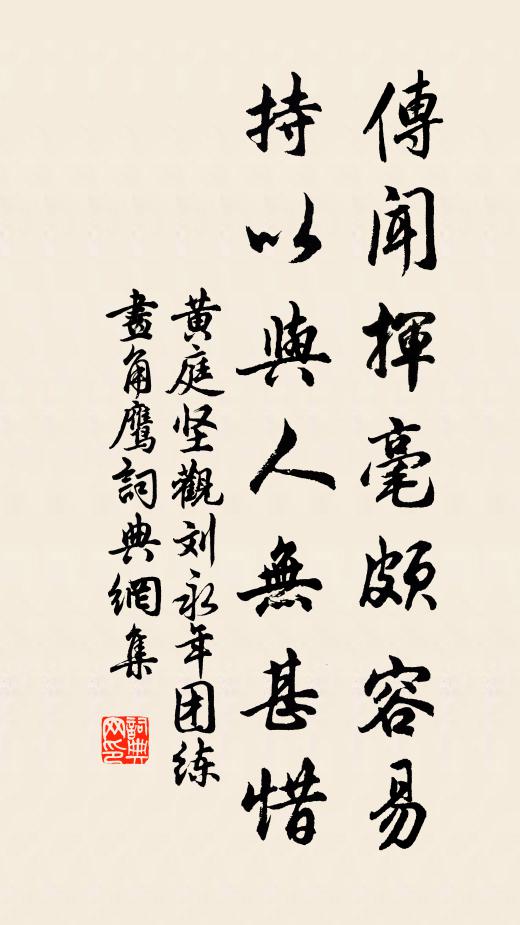 傳聞揮毫頗容易
持以與人無甚惜
黄庭坚觀刘永年团练
畫角鷹詞典網集
詞典網印